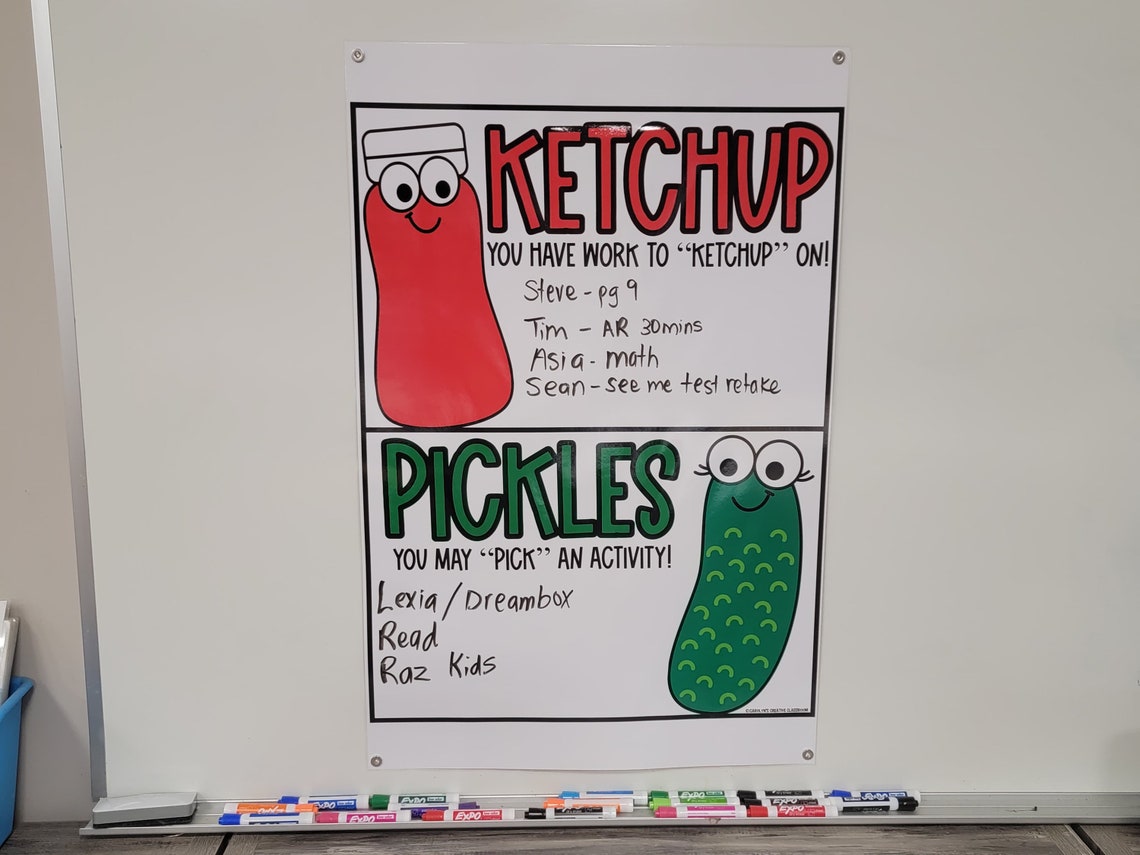 KETCHUP
YOU HAVE WORK TO “KETCHUP” ON!
Steve - pg 9
Tim - AR 30mins
Asia - math
Sean - see me test retake
PICKLES
YOU MAY “PICK” AN ACTIVITY!
Lexia / Dreambox
Read
Raz Kids
© CAROLYN'S CREATIVE CLASSROOM
EXPO
EXPO
EXPO
EXPO
EXPO
EXPO
EXPO
EXPO
EXPO